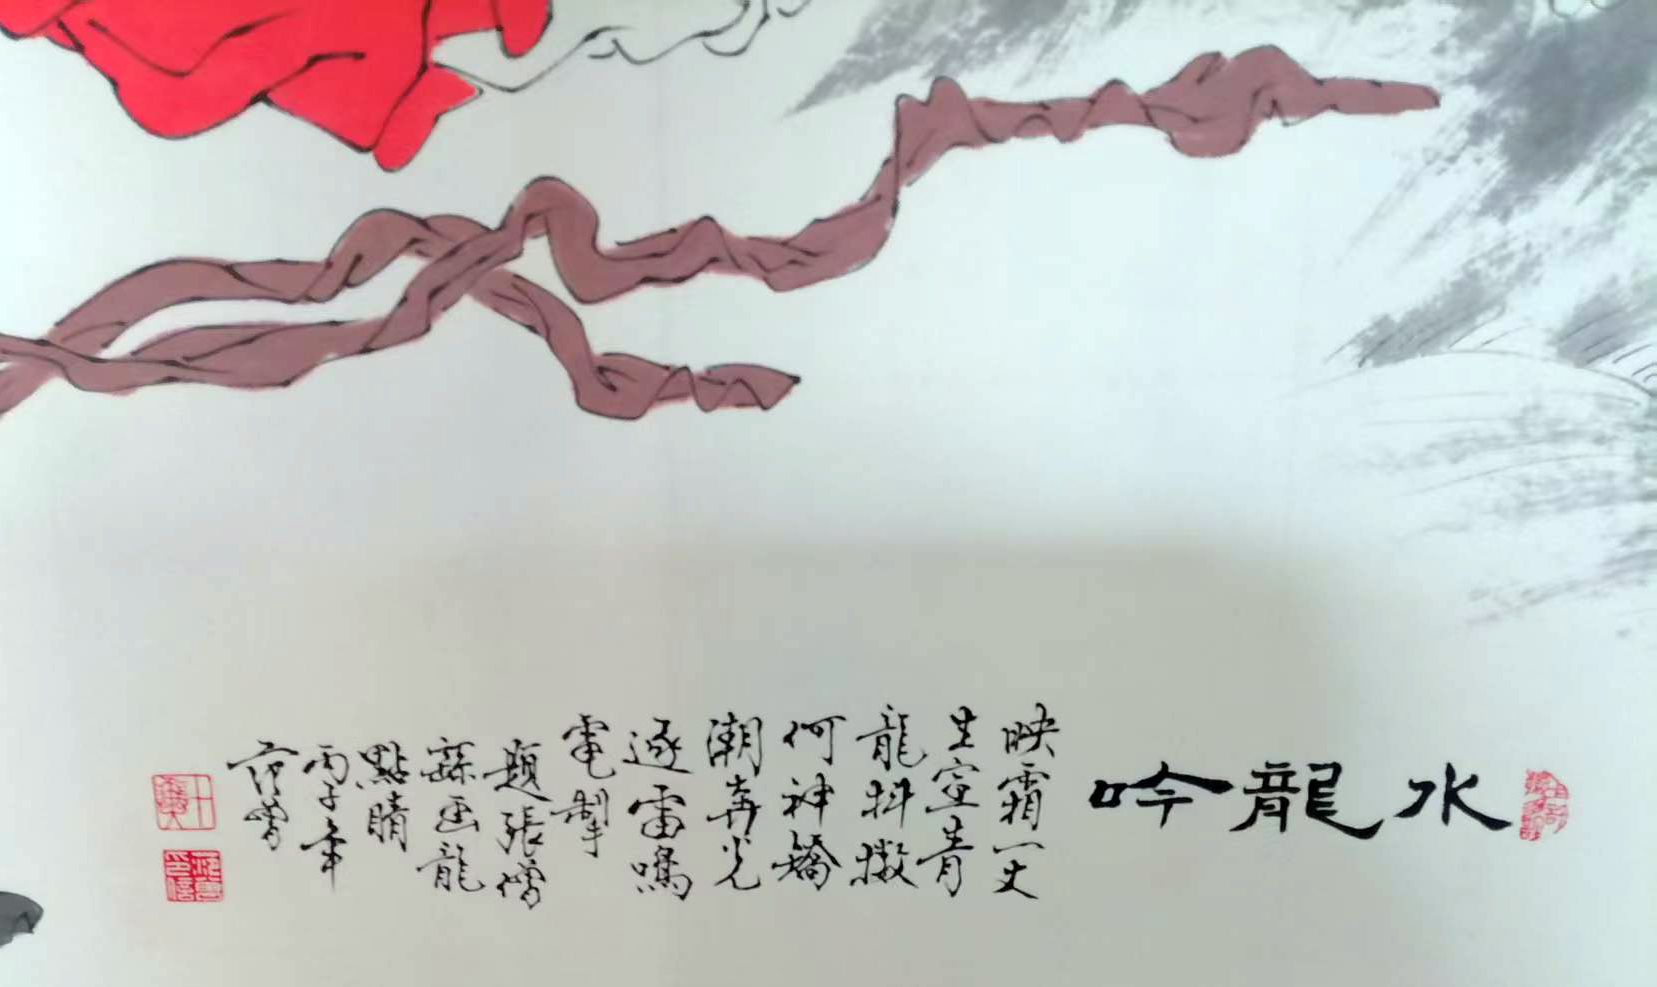 水龍吟
映霜一丈
生空青
龍抖擻
何神矯
潮奔光
逐雷鳴
電掣
題張僧
繇画龍
點睛
丙子年
范曾